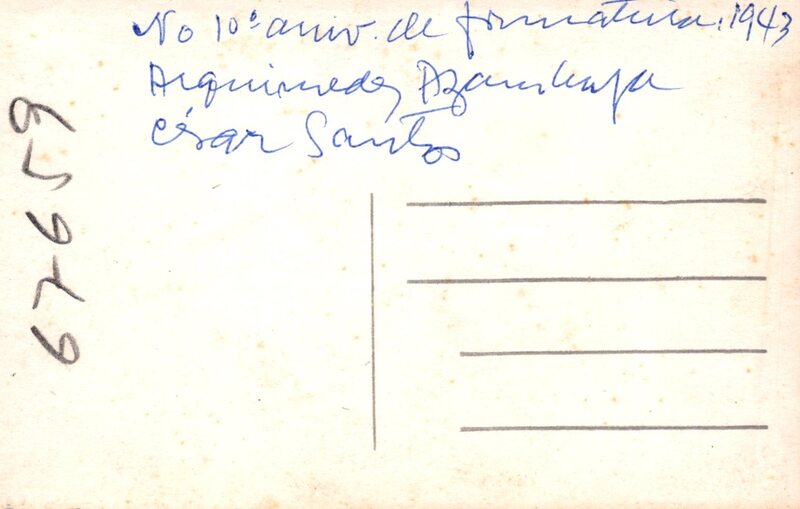 No 10º aniv. de formatura. 1943
Arquimedes Azambuja
César Santos
67659